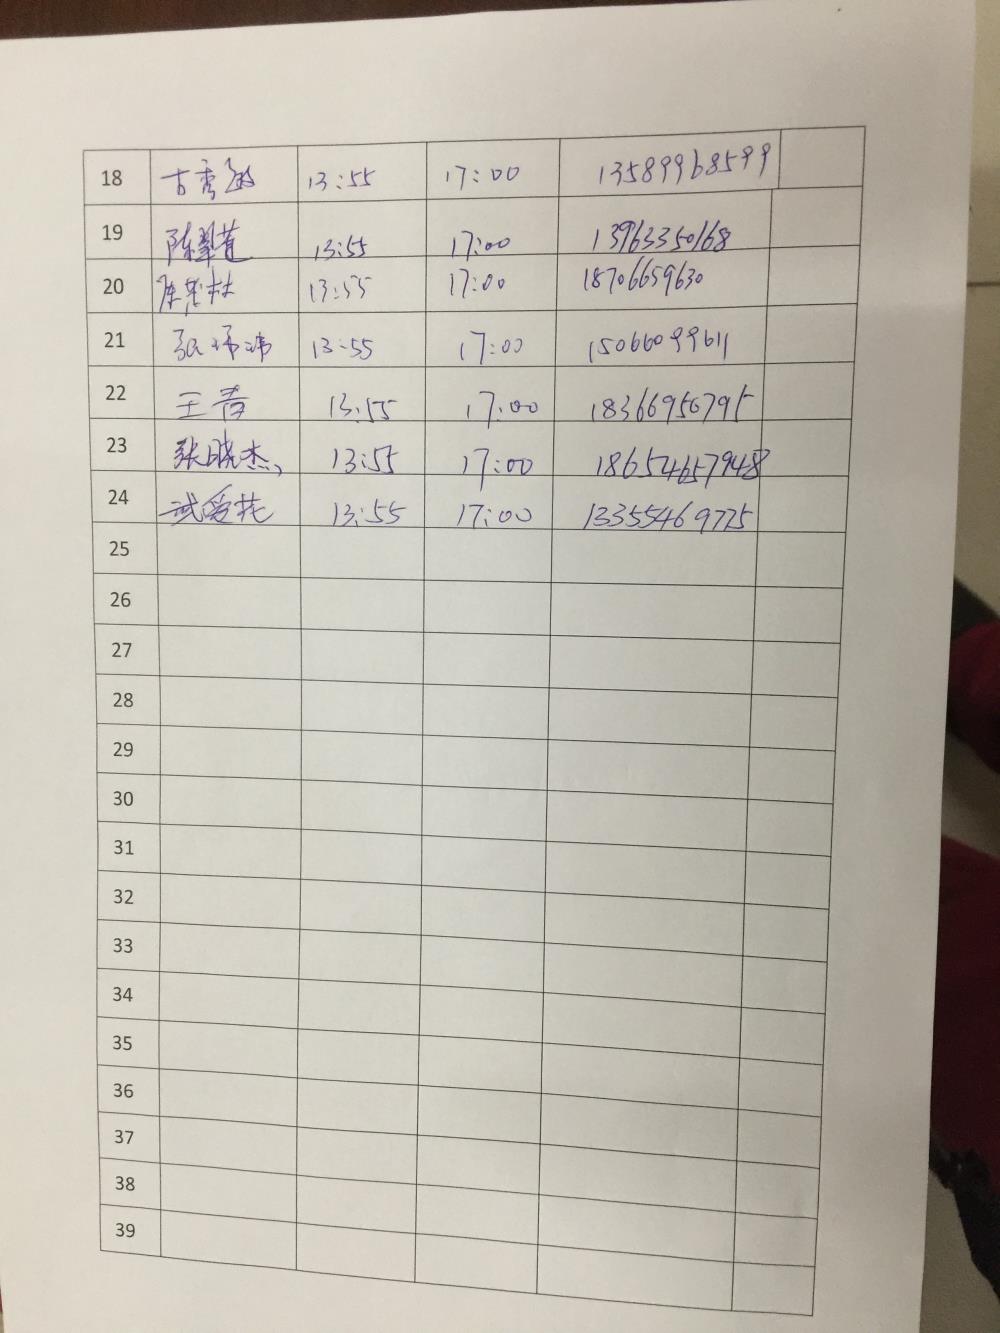 18 古秀 13:55 17:00 13589968599
19 陈翠莲 13:55 17:00 13963350168
20 13:55 17:00 18706659630
21 张玮玮 13:55 17:00 15066099611
22 王春 13:55 17:00 18366950795
23 张晓杰 13:55 17:00 18654657948
24 武爱花 13:55 17:00 13355469775
25
26
27
28
29
30
31
32
33
34
35
36
37
38
39